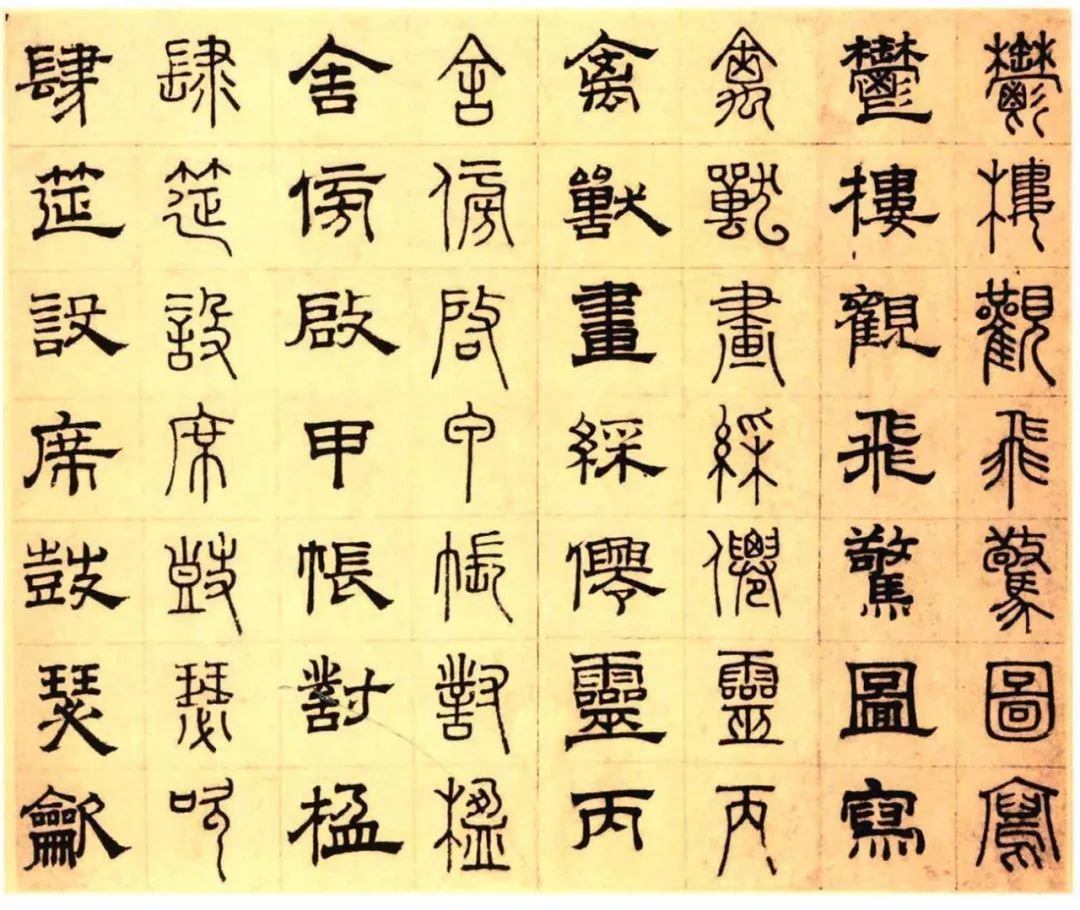 鬱樓觀飛驚圖寫
鬱樓觀飛驚圖寫
禽獸畫綵僊靈丙
禽獸畫綵僊靈丙
舍傍启甲帳對楹
舍傍啟甲帳對楹
肆筵設席鼓瑟吹
肆筵設席鼓瑟龡